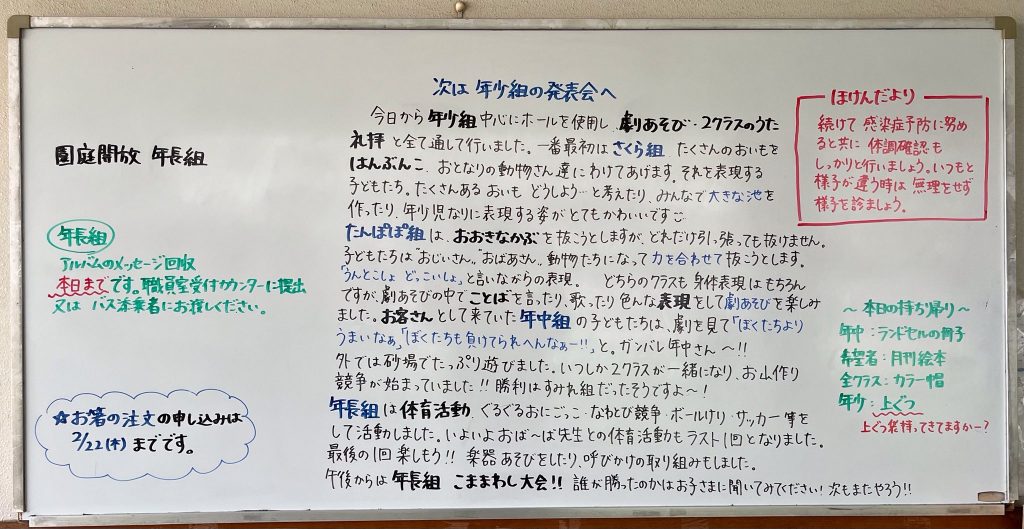 園庭開放 年長組
年長組
アルバムのメッセージ回収
本日までです。職員室受付カウンターに提出
又は バス添乗者にお渡しください。
☆お箸の注文の申し込みは
2/22(木)までです。
次は 年少組の発表会へ
今日から 年少組 中心にホールを使用し、劇あそび・2クラスのうた
礼拝 と全て通して行いました。一番最初は さくら組 たくさんのおいもを
はんぶんこ、おとなりの動物さん達にわけてあげます。それを表現する
子どもたち。たくさんある おいも どうしよう…と考えたり、みんなで大きな池を
作ったり、年少児なりに表現する姿がとてもかわいいです
たんぽぽ組は、おおきなかぶ を抜こうとしますが、どれだけ引っ張っても抜けません。
子どもたちは"おじいさん""おばあさん"動物たちになって力を合わせて抜こうとします。
「うんとこしょ どっこいしょ」と言いながらの表現。 どちらのクラスも身体表現はもちろん
ですが、劇あそびの中で ことばを言ったり、歌ったり色んな表現をして劇あそびを楽しみ
ました。お客さんとして来ていた 年中組 の子どもたちは、劇を見て「ぼくたちより
うまいなぁ」「ぼくたちも負けてられへんなぁー!!」と。ガンバレ年中さん〜!!
外では砂場でたっぷり遊びました。いつしか2クラスが一緒になり、お山作り
競争が始まっていました!! 勝利はすみれ組だったそうですよ〜!
年長組は体育活動、ぐるぐるおにごっこ・なわとび競争・ボールけり・サッカー等を
して活動しました。いよいよ おば〜ば先生との体育活動もラスト1回となりました。
最後の1回楽しもう!! 楽器あそびをしたり、呼びかけの取り組みもしました。
午後からは 年長組 こままわし大会!! 誰が勝ったのかはお子さまに聞いてみてください! 次もまたやろう!!
ほけんだより
続けて 感染症予防に努め
ると共に 体調確認も
しっかりと行いましょう。いつもと
様子が違う時は 無理をせず
様子を診ましょう。
〜本日の持ち帰り〜
年中:ランドセルの冊子
希望者:月刊絵本
全クラス:カラー帽
年少:上ぐつ
上ぐつ発拝ってきてますかー?